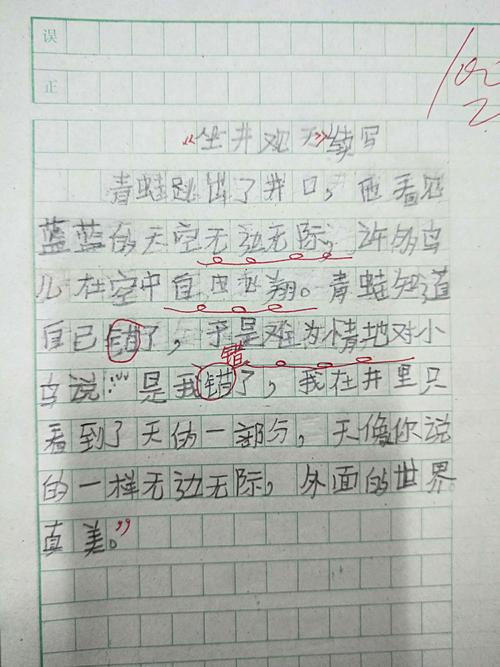 误
正
100
《坐井观天》续写
青蛙跳出了井口，他看见
蓝蓝的天空无边无际，许多鸟
儿在空中自由飞翔。青蛙知道
自己错了，于是难为情地对小
错
鸟说：“是我错了，我在井里只
看到了天的一部分，天像你说
的一样无边无际，外面的世界
真美。”